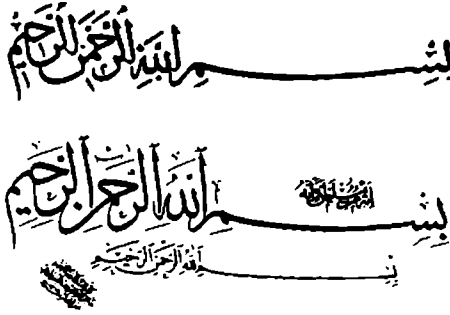 بِسْمِ اللَّهِ الرَّحْمَنِ الرَّحِيمِ
بِسْمِ اللَّهِ الرَّحْمَنِ الرَّحِيمِ
بسم الله الرحمن الرحيم